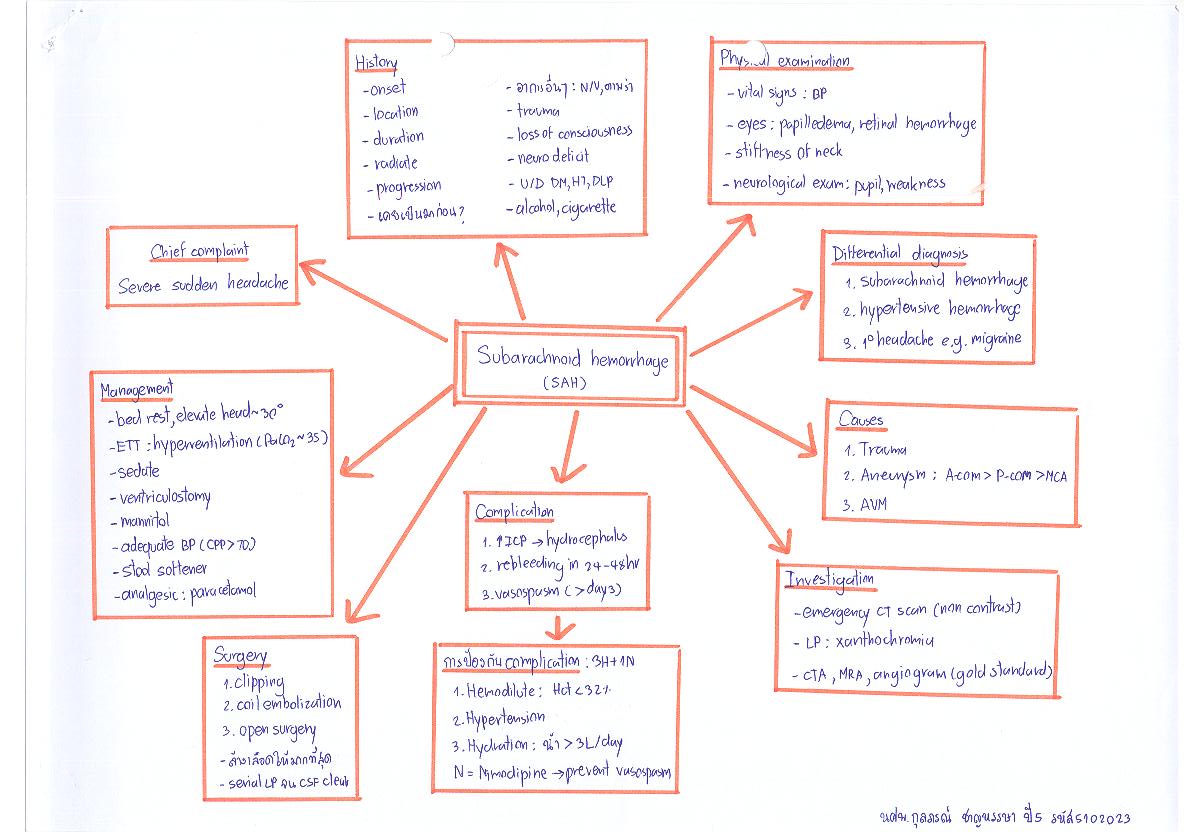 History
-onset
-location
-duration
-radiate
-progression
-เคยเป็นมาก่อน?
- อาการอื่นๆ : N/V, ตามัว
- trauma
- loss of consciousness
- neuro deficit
- U/D DM, HT, DLP
- alcohol, cigarette
Physical examination
-vital signs : BP
-eyes : papilledema, retinal hemorrhage
-stiffness of neck
-neurological exam : pupil, weakness
Chief complaint
Severe sudden headache
Differential diagnosis
1. Subarachnoid hemorrhage
2. hypertensive hemorrhage
3. 1° headache e.g. migraine
Subarachnoid hemorrhage
(SAH)
Management
-bed rest, elevate head ~30°
-ETT : hyperventilation (PaCO2 ~ 35)
-sedate
-ventriculostomy
-mannitol
-adequate BP (CPP > 70)
-stool softener
-analgesic : paracetamol
Causes
1. Trauma
2. Aneurysm ; A-com > P-com > MCA
3. AVM
Complication
1. ↑ICP → hydrocephalus
2. rebleeding in 24-48hr
3. vasospasm (> day 3)
Investigation
-emergency CT scan (non contrast)
- LP : xanthochromia
- CTA, MRA, angiogram (gold standard)
Surgery
1. clipping
2. coil embolization
3. open surgery
- ล้างเลือดให้มากที่สุด
- serial LP จน CSF clear
การป้องกัน complication : 3H+1N
1. Hemodilute : Hct < 32%
2. Hypertension
3. Hydration : น้ำ > 3L/day
N = Nimodipine → prevent vasospasm
นศพ. กุลภรณ์ ชาญบรรษา ปี5 รหัส5102023